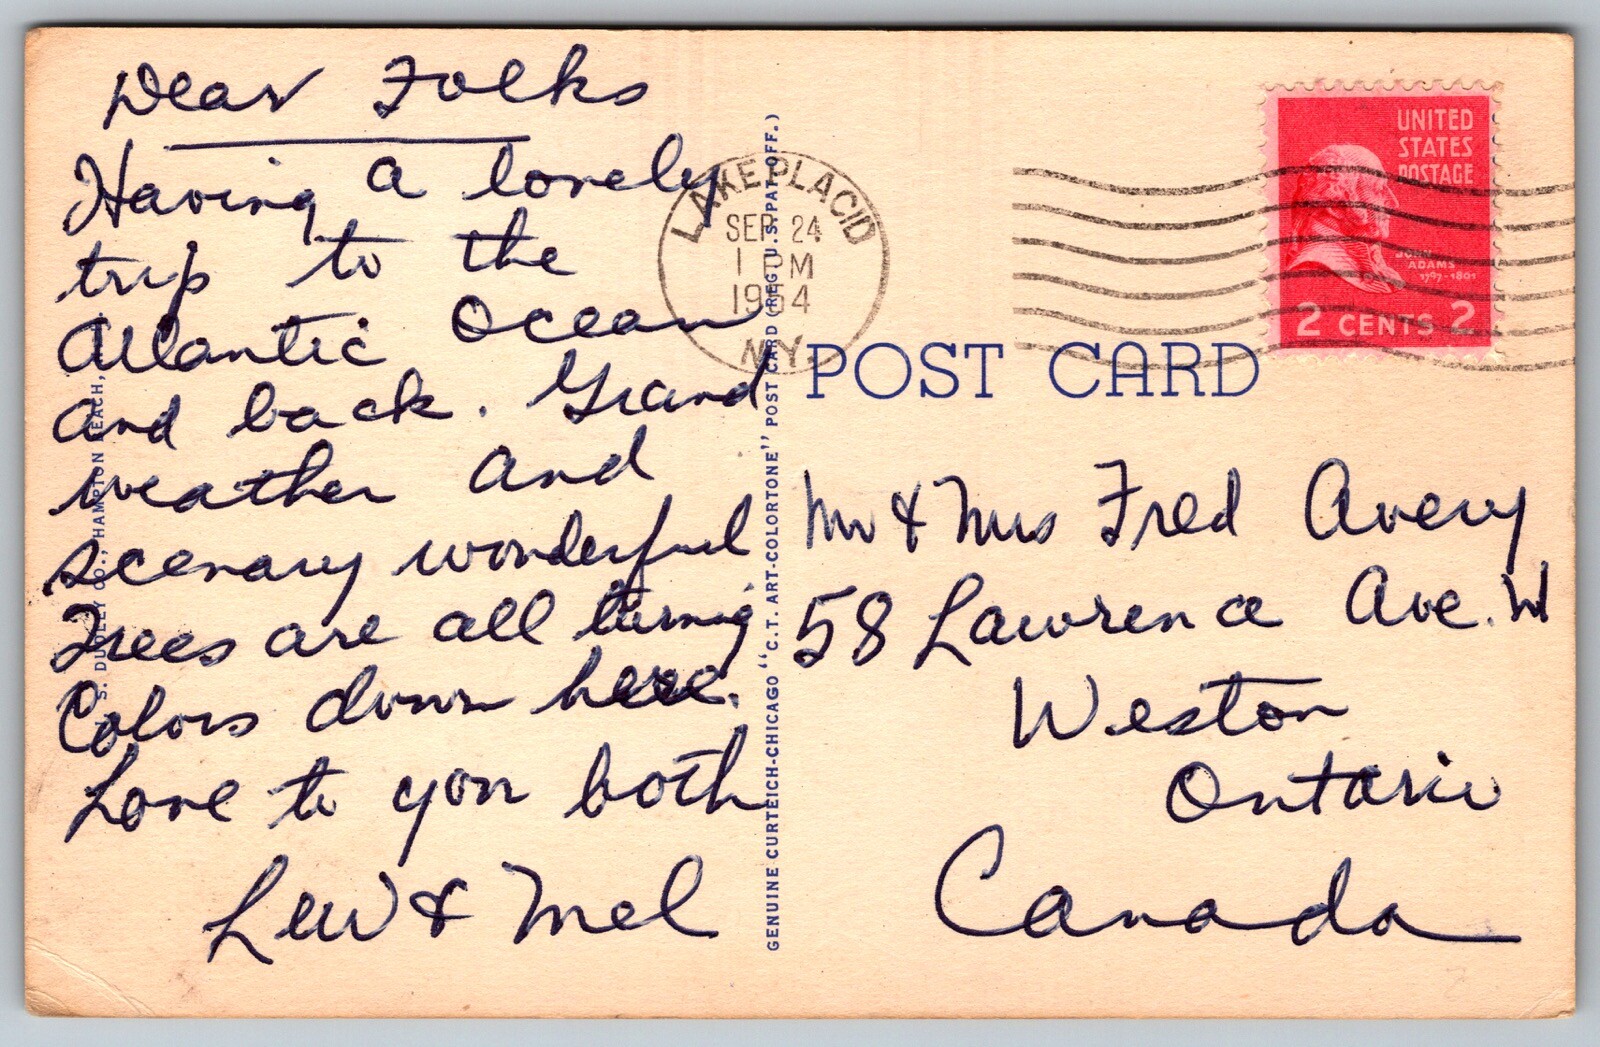 Dear Folks
Having a lovely
trip to the
Atlantic Ocean
and back. Grand
weather and
scenary wonderful
Trees are all turning
Colors down here.
Love to you both
Lew & Mel
S. DUDLEY CO., HAMPTON BEACH,
GENUINE CURTEICH-CHICAGO "C.T. ART-COLORTONE" POST CARD (REG. U.S. PAT. OFF.)
LAKE PLACID
SEP 24
1 PM
1954
N.Y.
UNITED
STATES
POSTAGE
JOHN
ADAMS
1797-1801
2 CENTS 2
POST CARD
Mr & Mrs Fred Avery
58 Lawrence Ave. W
Weston
Ontario
Canada